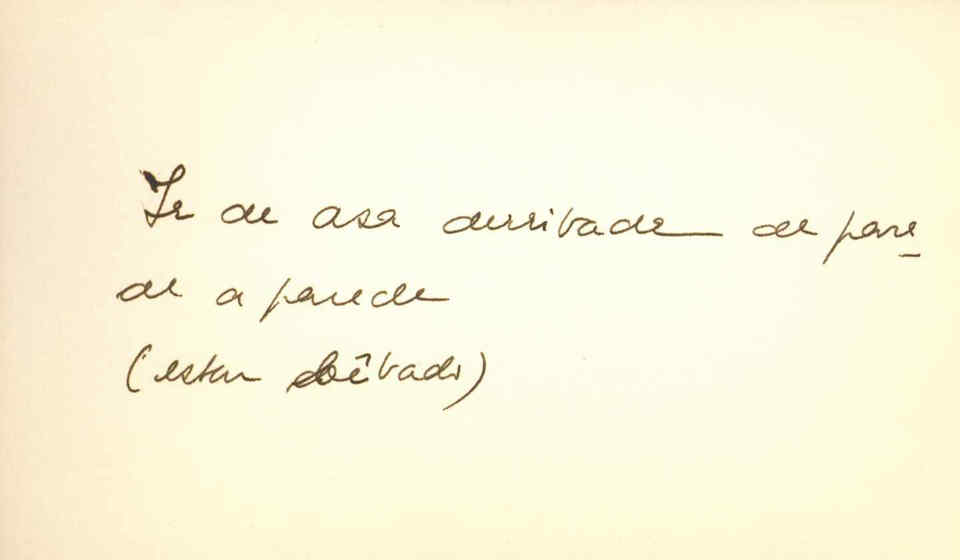 Ir de asa derribada de pare
de a parede
(estar bêbado)